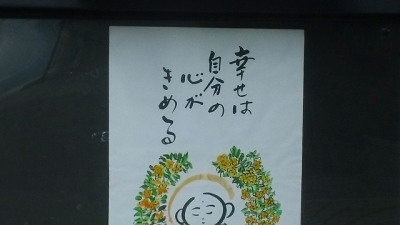 幸せは
自分の
心が
きめる